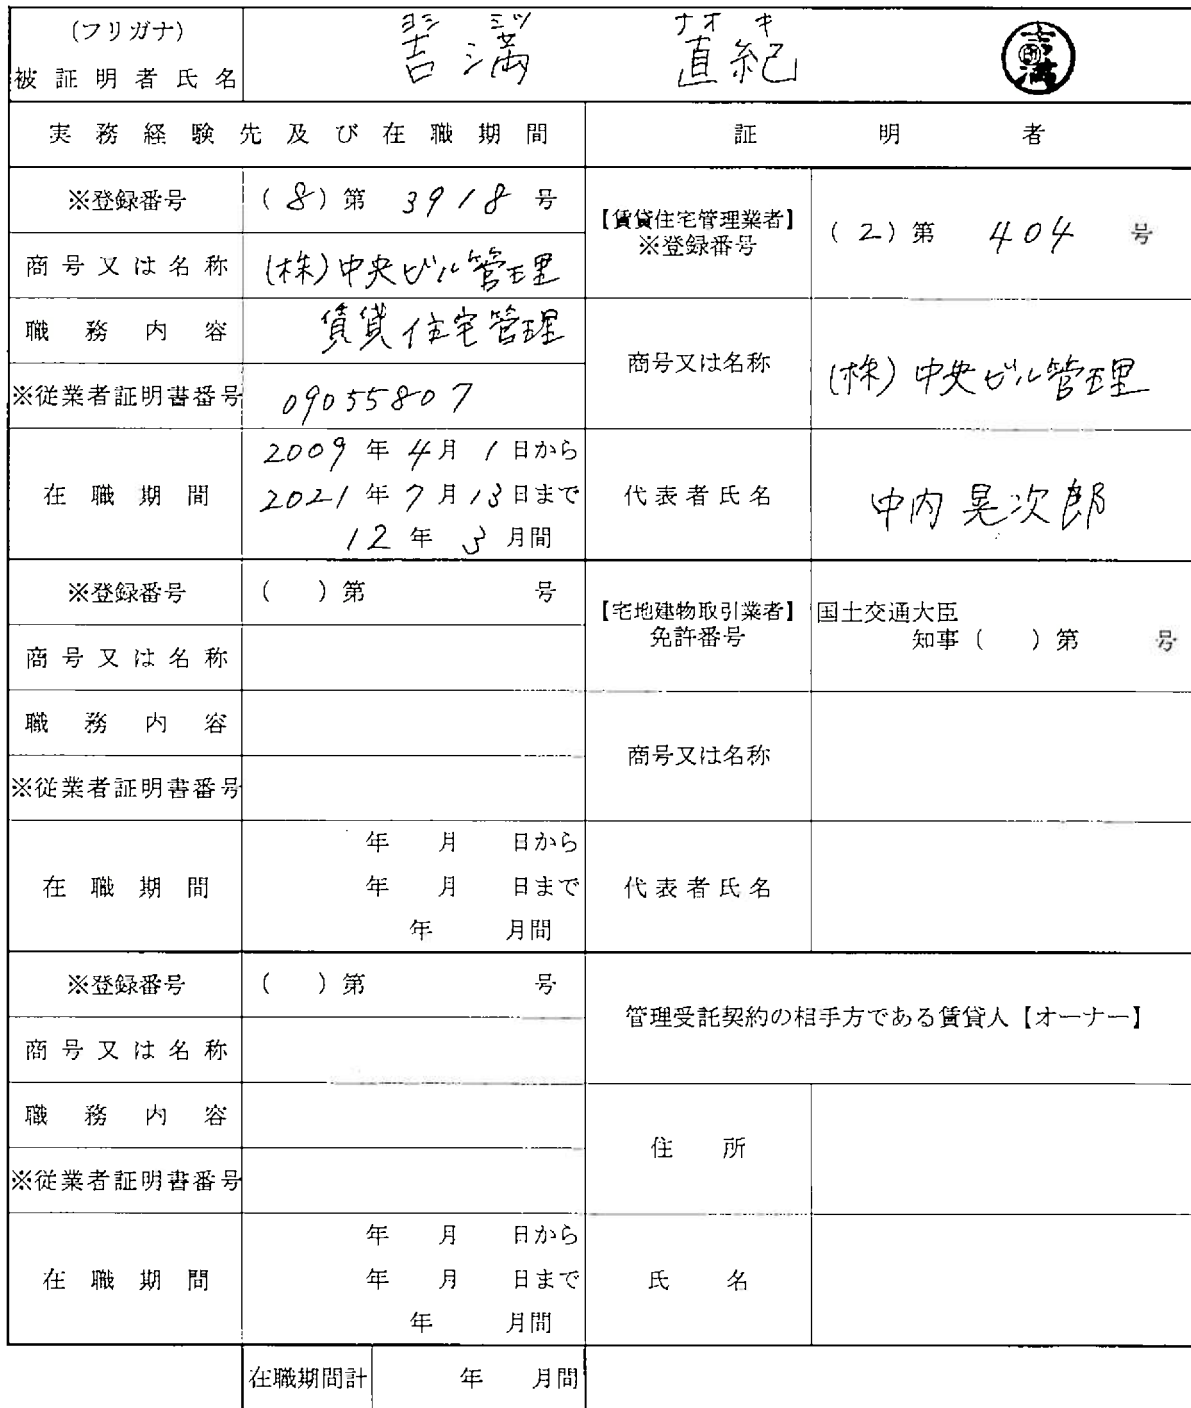 (フリガナ) ヨシ ミツ ナオ キ
被証明者氏名 吉満 直紀
実務経験先及び在職期間 証明者
※登録番号 (8)第 3918 号
【賃貸住宅管理業者】
※登録番号 (2)第 404 号
商号又は名称 (株)中央ビル管理
職務内容 賃貸住宅管理
商号又は名称 (株)中央ビル管理
※従業者証明書番号 09055807
在職期間
2009 年 4月 1 日から
2021 年 7月 13日まで
12 年 3 月間
代表者氏名 中内 晃次郎
※登録番号 ( )第 号
【宅地建物取引業者】
免許番号
国土交通大臣
知事( )第 号
商号又は名称
職務内容
商号又は名称
※従業者証明書番号
在職期間
年 月 日から
年 月 日まで
年 月間
代表者氏名
※登録番号 ( )第 号
管理受託契約の相手方である賃貸人【オーナー】
商号又は名称
職務内容
住所
※従業者証明書番号
在職期間
年 月 日から
年 月 日まで
年 月間
氏名
在職期間計 年 月間